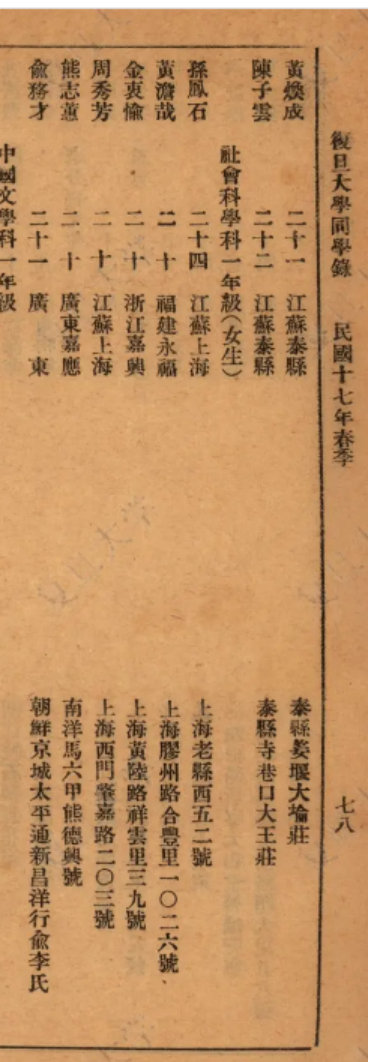 復旦大學同學錄 民國十七年春季 七八
黃煥成 二十一 江蘇泰縣 泰縣姜堰大墖莊
陳子雲 二十二 江蘇泰縣 泰縣寺巷口大王莊
社會科學科一年級(女生)
孫鳳石 二十四 江蘇上海 上海老縣西五二號
黃澹哉 二十 福建永福 上海膠州路合豐里一〇二六號
金衷愉 二十 浙江嘉興 上海黃陸路祥雲里三九號
周秀芳 二十 江蘇上海 上海西門肇嘉路二〇三號
熊志蕙 二十 廣東嘉應 南洋馬六甲熊德興號
俞務才 二十一 廣東 朝鮮京城太平通新昌洋行俞李氏
中國文學科一年級